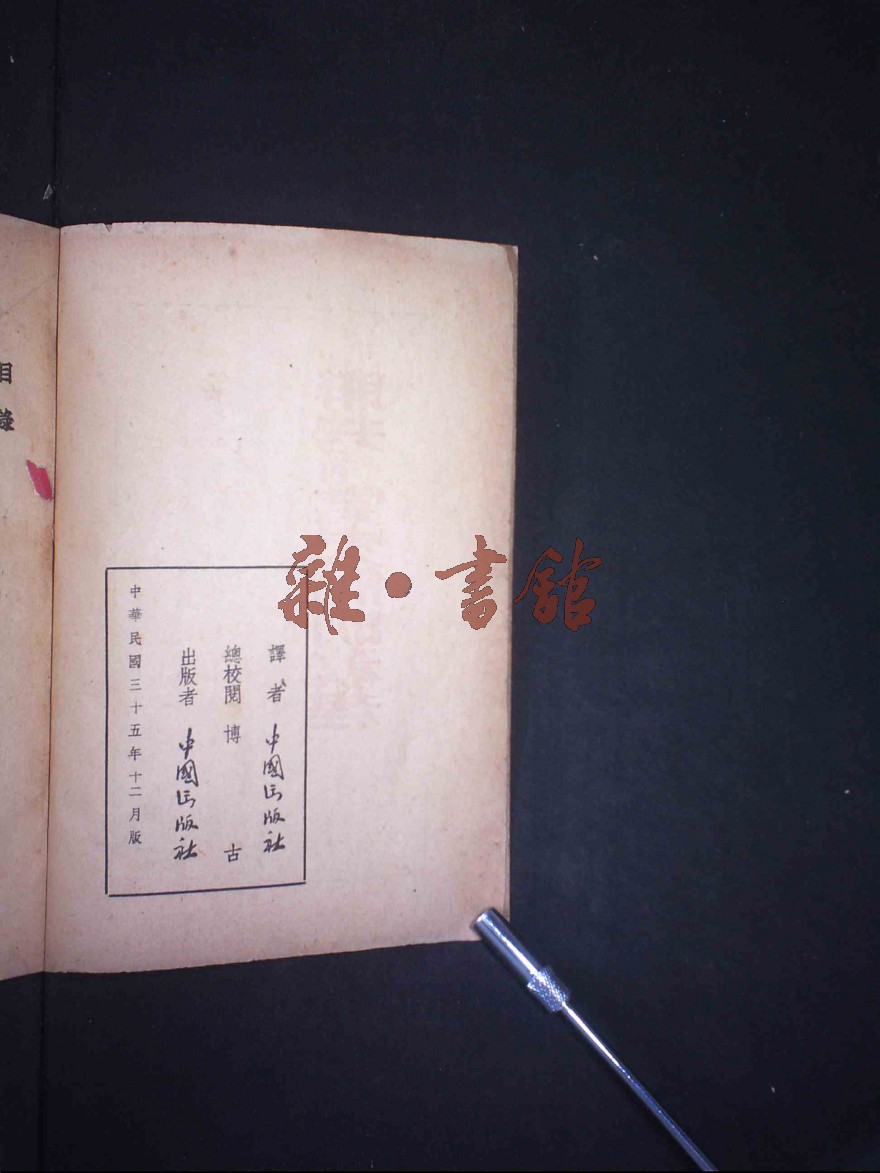 譯者 中國出版社
總校閱 博古
出版者 中國出版社
中華民國三十五年十二月版
目錄
雜·書館